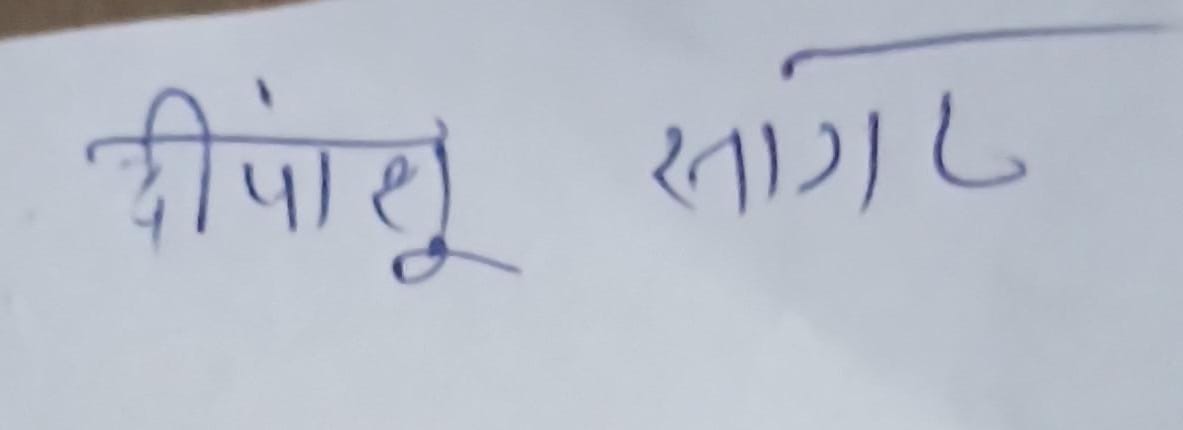 दीपांशू सागर